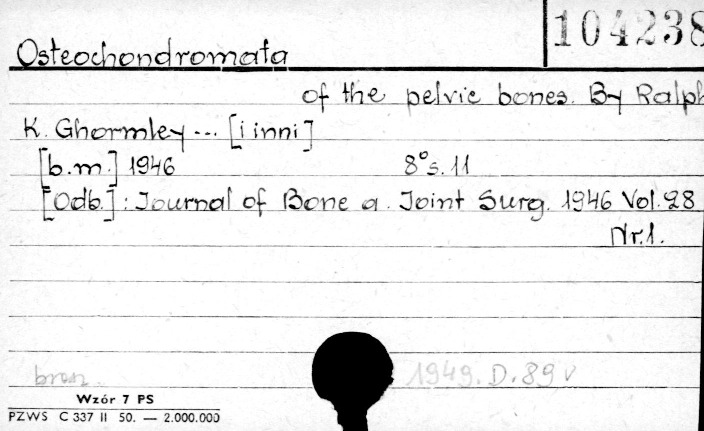 104238
Osteochondromata
of the pelvic bones. By Ralph
K. Ghormley --- [i inni]
[b.m.] 1946 8° s. 11
[Odb.]: Journal of Bone a. Joint Surg. 1946 Vol. 28
Nr. 1.
1949. D. 89 v
Wzór 7 PS
PZWS C 337 II 50. — 2.000.000